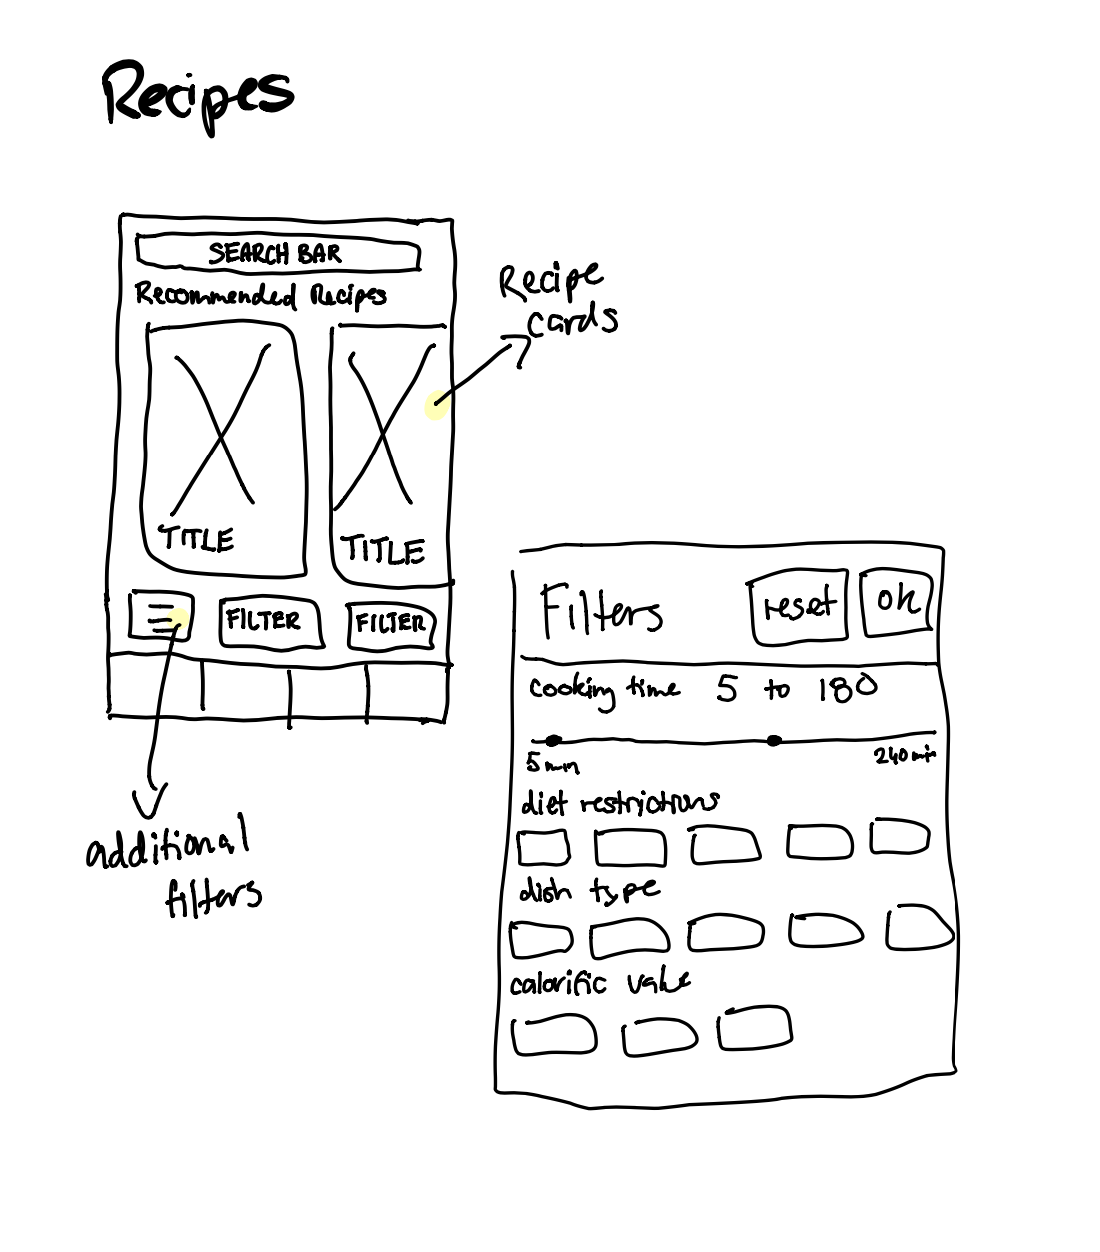 Recipes
SEARCH BAR
Recommended Recipes
TITLE
TITLE
FILTER
FILTER
Recipe
cards
additional
filters
Filters
reset
ok
cooking time 5 to 180
5 min
240 min
diet restrictions
dish type
calorific value